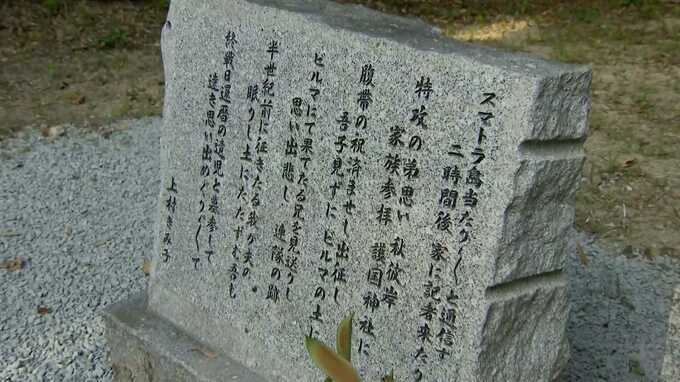 スマトラ島当たり〳〵と通信す
二時間後家に記者来たり
特攻の弟思い秋彼岸
家族参拝 護国神社に
腹帯の祝済ませし出征し
吾子見ずにビルマの土に
ビルマにて果てたる兄を見送りし
思い出悲し 連隊の跡
半世紀前に征きたる我が夫の
眠りし土にたたずむ吾も
終戦日還暦の遺児と墓参して
遠き思い出めぐり〳〵て
上村きみ子